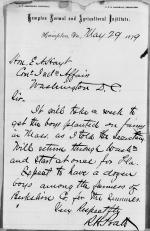 Hampton Normal and Agricultural Institute,
Hampton, Va., May 29 1879
Hon. E. A. Hayt
Com. Ind. Affairs
Washington D.C.
Sir.
It will take a week to
get the boys planted on farms
in Mass. as I told the Secretary
Will return through Wash'n
and start at once for Fla.
Expect to have a dozen
boys among the farmers of
Berkshire Co for the summer
Very Respectfully
R H Pratt